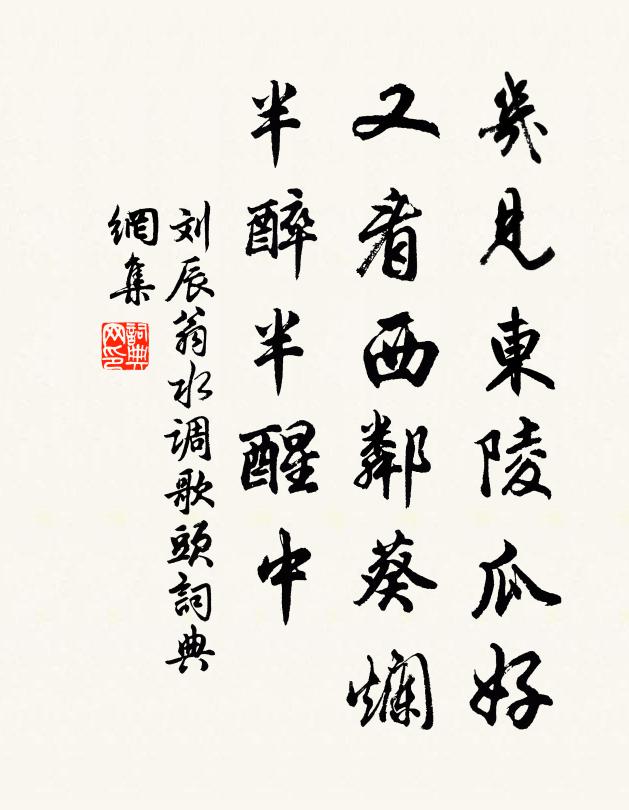 幾見東陵瓜好
又看西鄰葵爛
半醉半醒中
刘辰翁水调歌頭詞典
網集
詞典网印